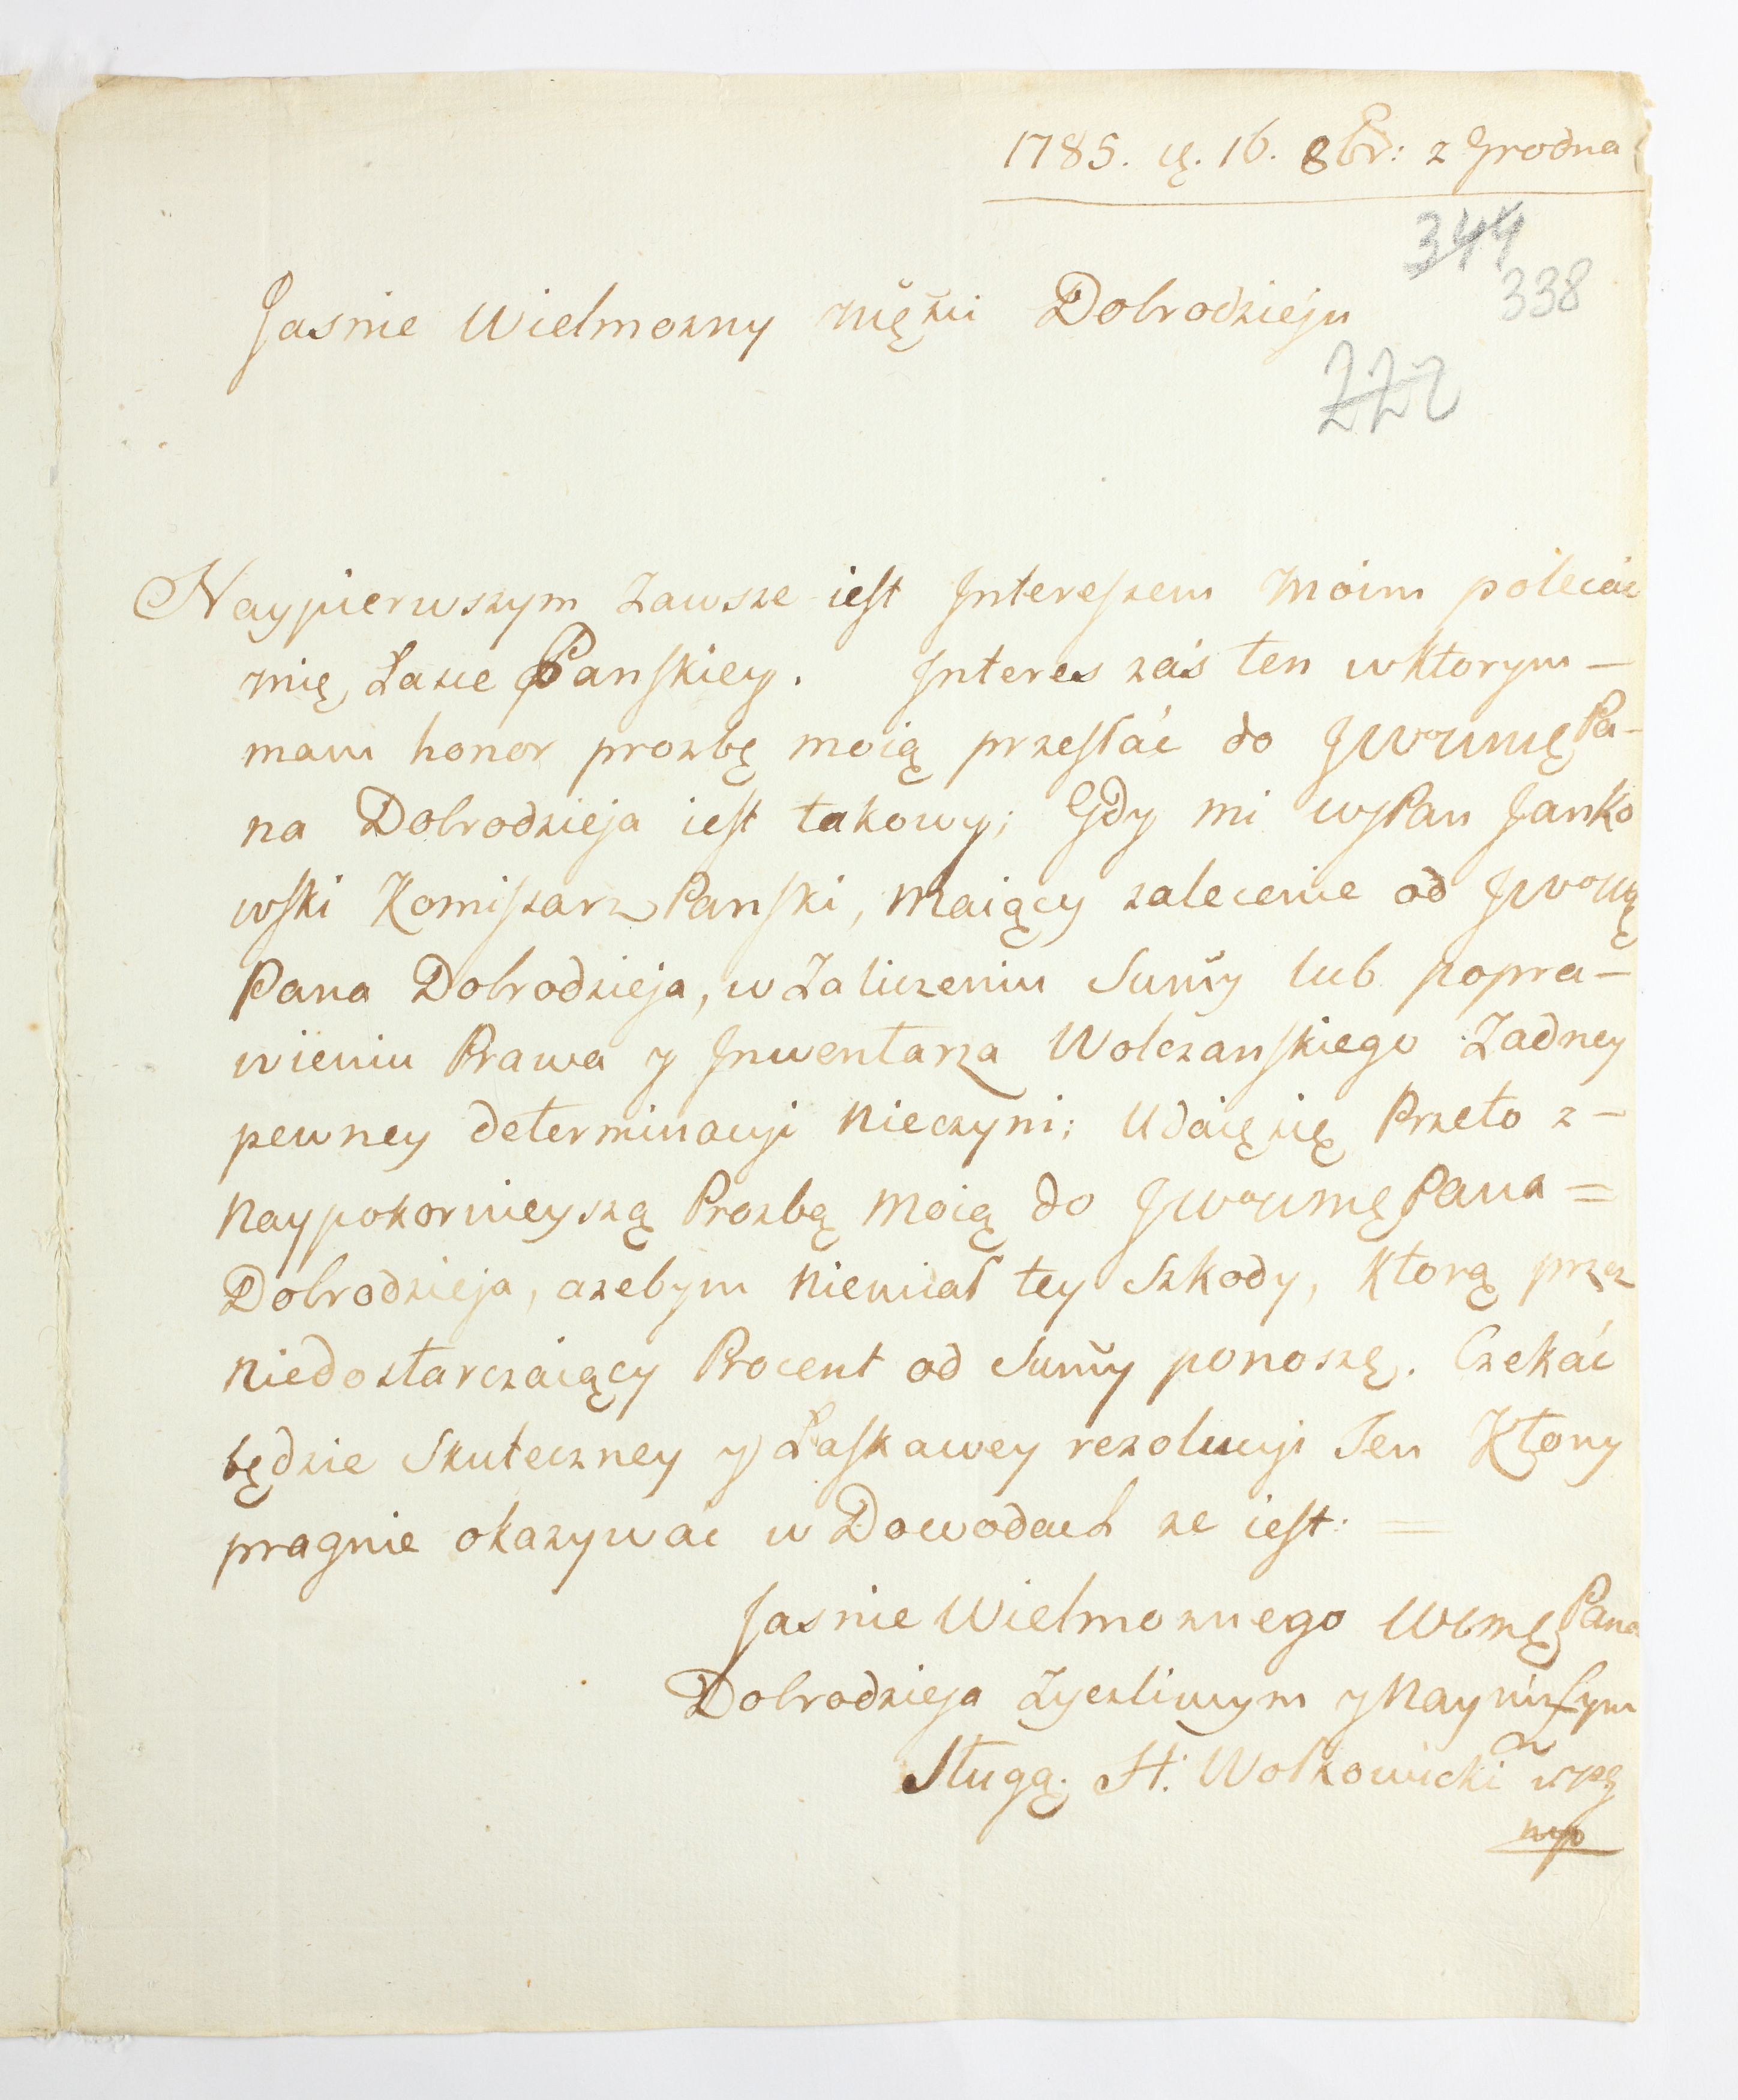 1785. 16. 8br: z Grodna
344
338
Jasnie Wielmozny Dobrodzieju
222
Naypierwszym Zawsze iest Jntereszem Moim polecać
mię Łasce Panskiey. Jnteres zaś ten wktorym –
mam honor prozbę moią przesłać do JWWmę Pa-
na Dobrodzieja iest takowy; Gdy mi WJPan Janko
wski Komiszarz Panski, Maiący zalecenie od
Pana Dobrodzieja, w Zaliczeniu Sum̃y lub popra –
wieniu Prawa y Jnwentarza Wolczanskiego Żadney
pewney determinacyi Nieczyni; Udaię się Przeto z –
Naypokornieyszą Prozbą Moią do JWWmę Pana =
Dobrodzieja, azebym Niemiał tey Szkody, Ktorą przez
Niedostarczaiący Procent od Sum̃y ponoszę. Czekać
będzie Skuteczney y Łaskawey rezolucyi Ten Ktory
pragnie okazywać w Dowodach ze iest: =
Jasnie Wielmoznego Wmę Pana
Dobrodzieja Zyczliwym y Nayniższym
Sługą. St. Wołkowicki
mp